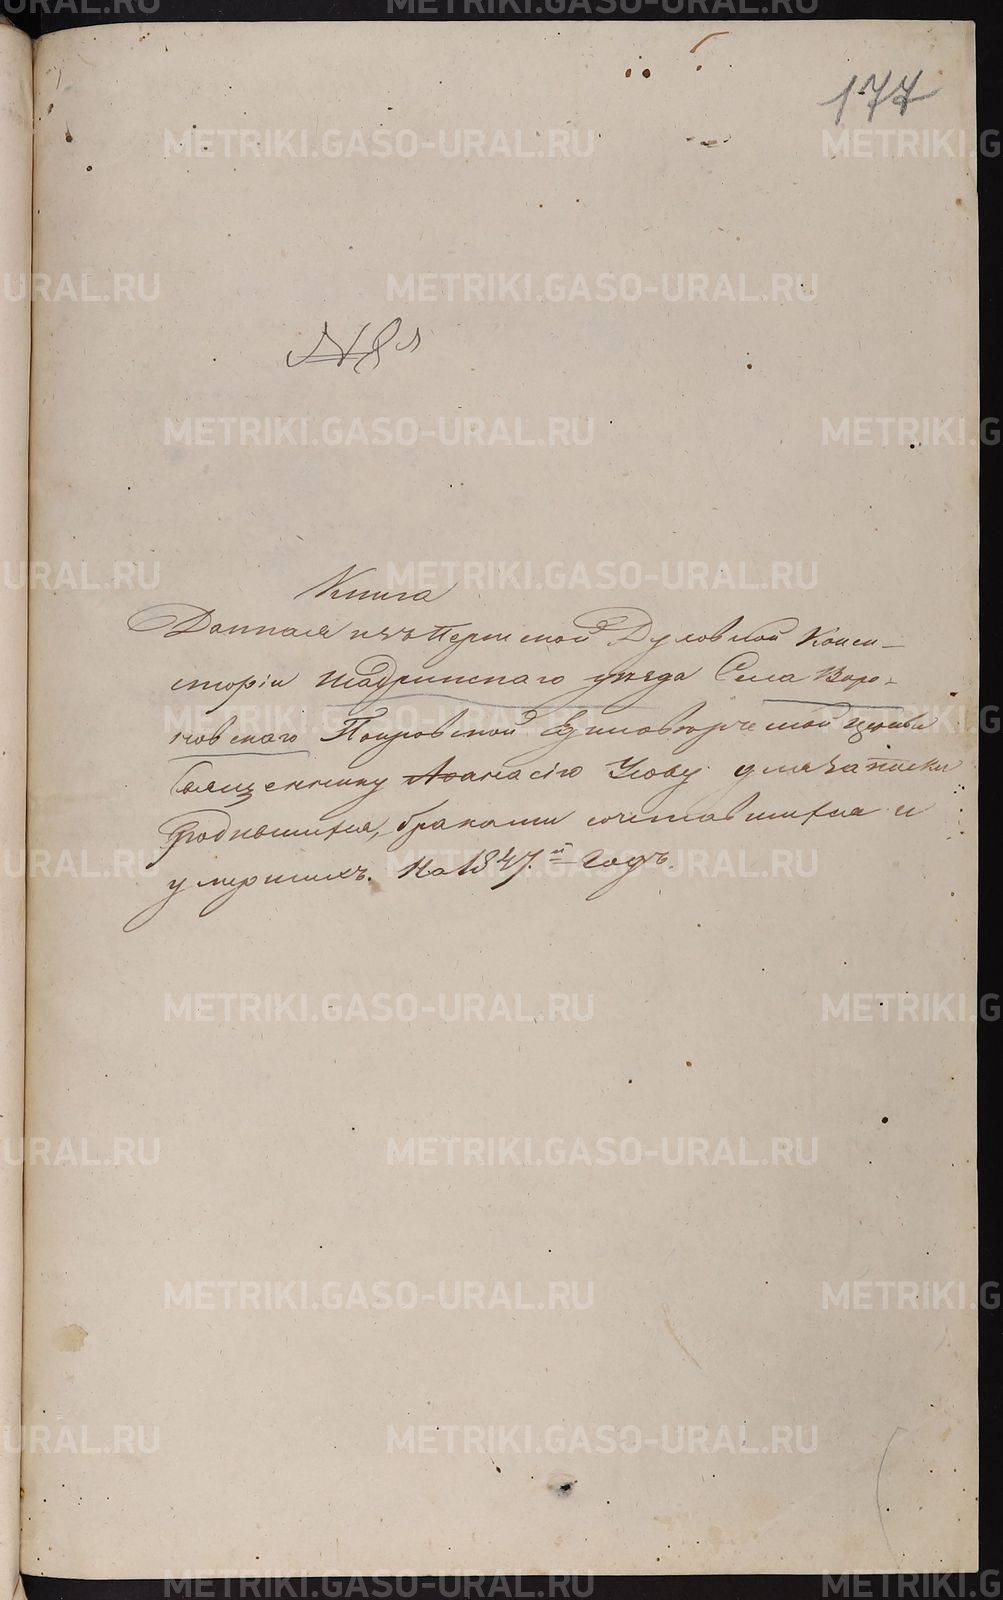 177
№ 8
Книга
Данная изъ Пермской Духовной Конси-
сторіи Шадринскаго уѣзда Села Воро-
новскаго Покровской Единовѣрческой церкви
Священнику Аѳанасію Усову для записки
родившихся, браками сочетавшихся и
умершихъ. На 1847.й годъ.